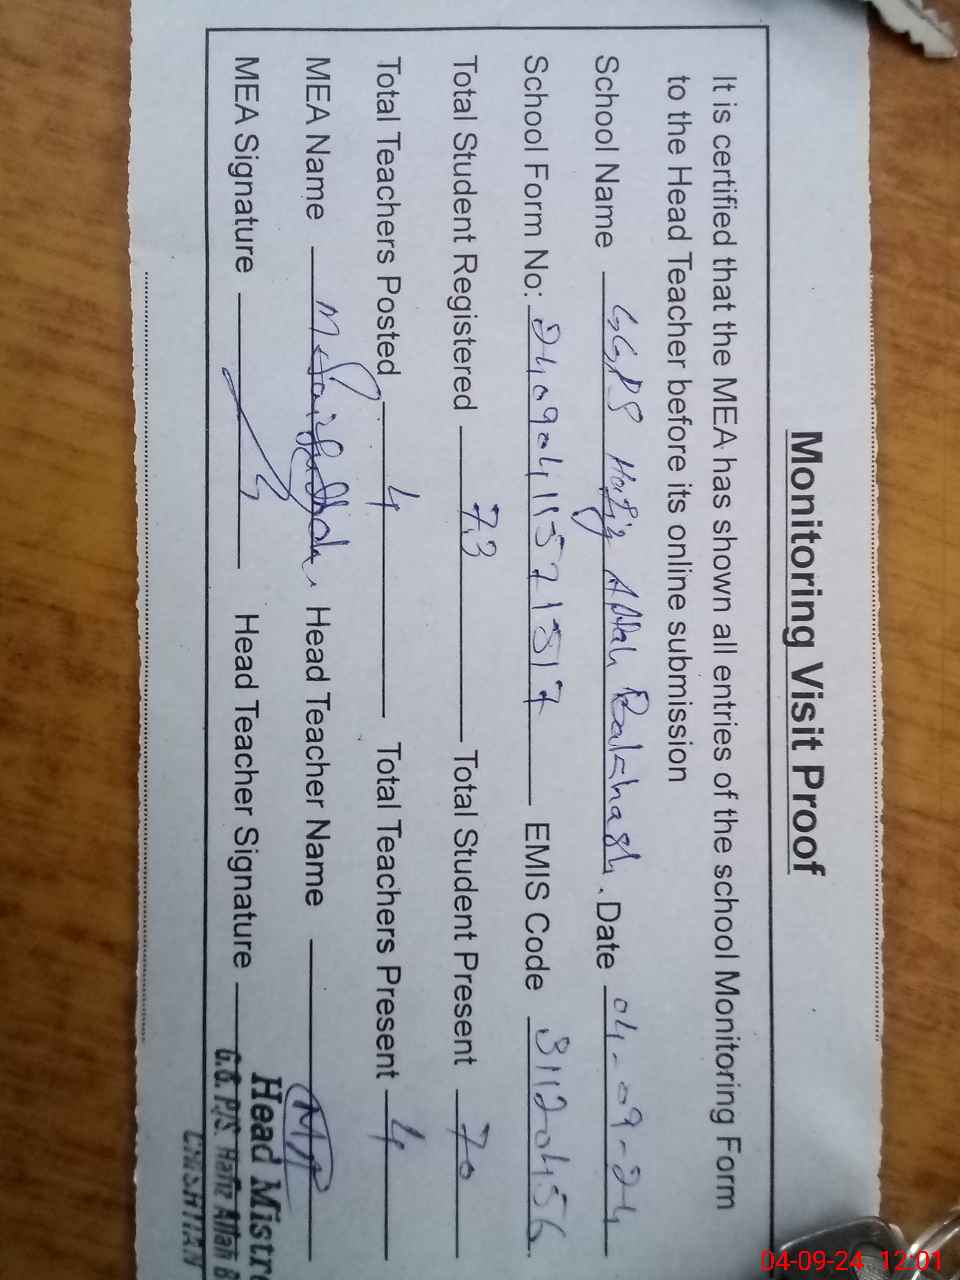 Monitoring Visit Proof
It is certified that the MEA has shown all entries of the school Monitoring Form
to the Head Teacher before its online submission
School Name GGPS Hafiz Allah Bakhash. Date 04-09-24
School Form No: 240904115721517 EMIS Code 31120456
Total Student Registered 73 Total Student Present 70
Total Teachers Posted 4 Total Teachers Present 4
MEA Name Head Teacher Name
MEA Signature Head Teacher Signature
Head Mistre
G.G. P/S. Hafiz Allah B
CHISHTIAN
04-09-24 12:01